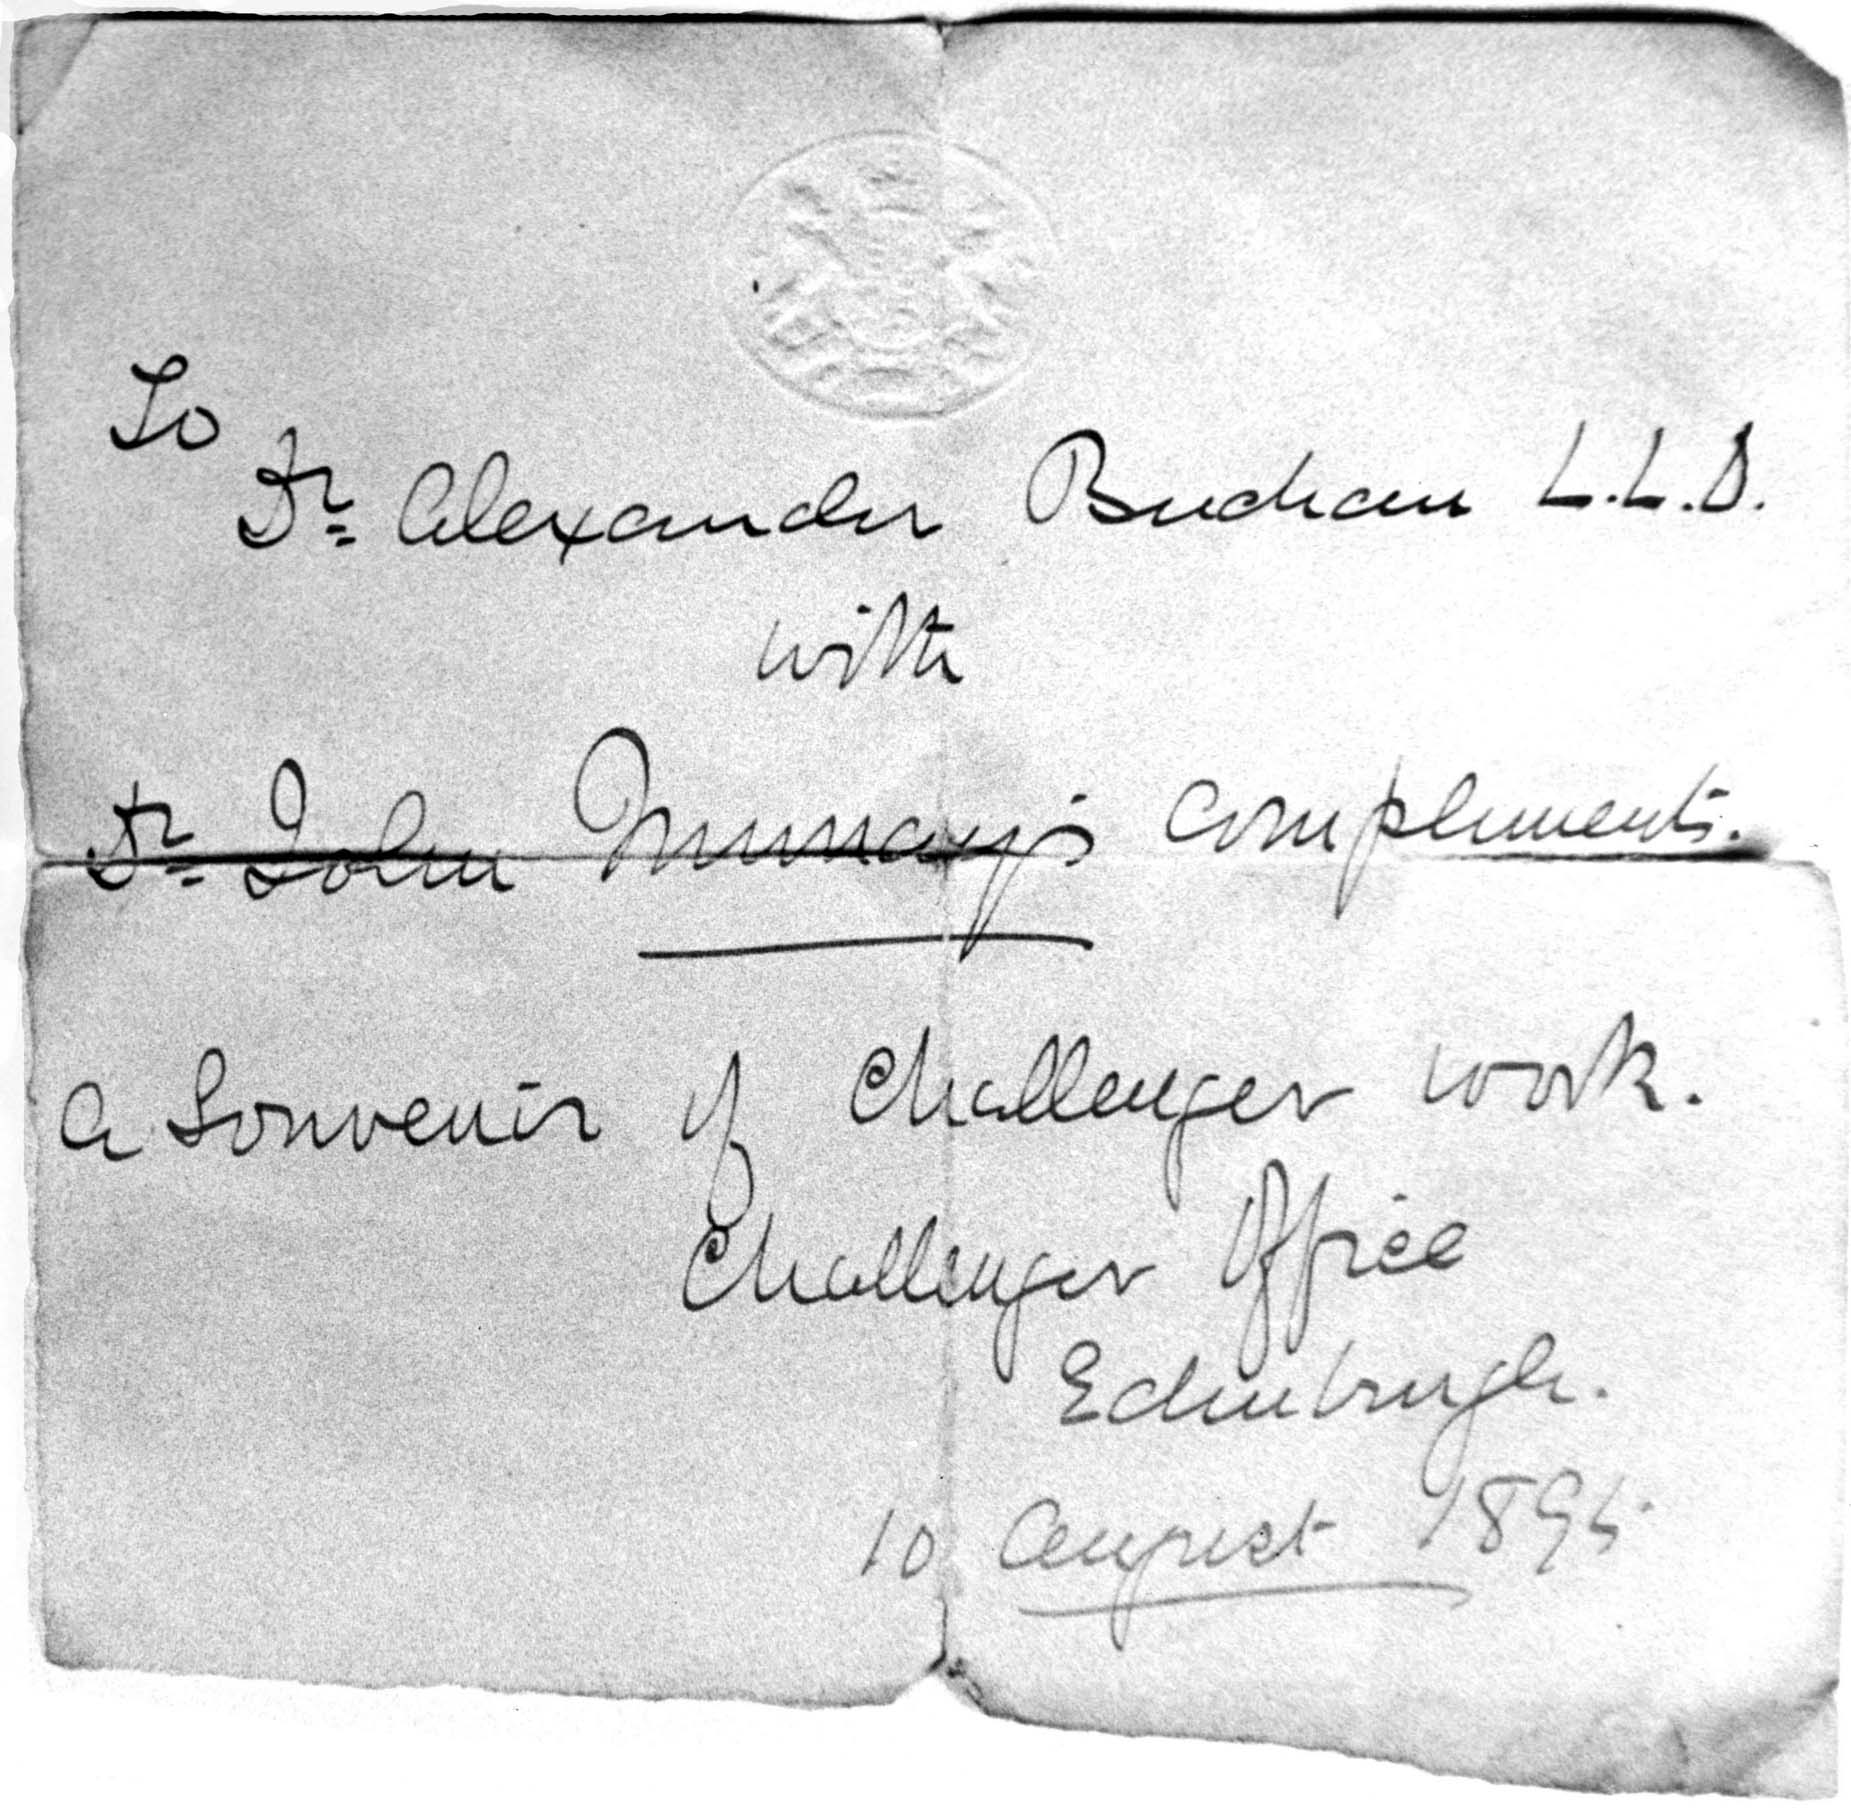 To
Dr. Alexander Buchan L.L.D.
with
Dr. John Murray's compliments.
A Souvenir of Challenger work.
Challenger Office
Edinburgh.
10 August 1895